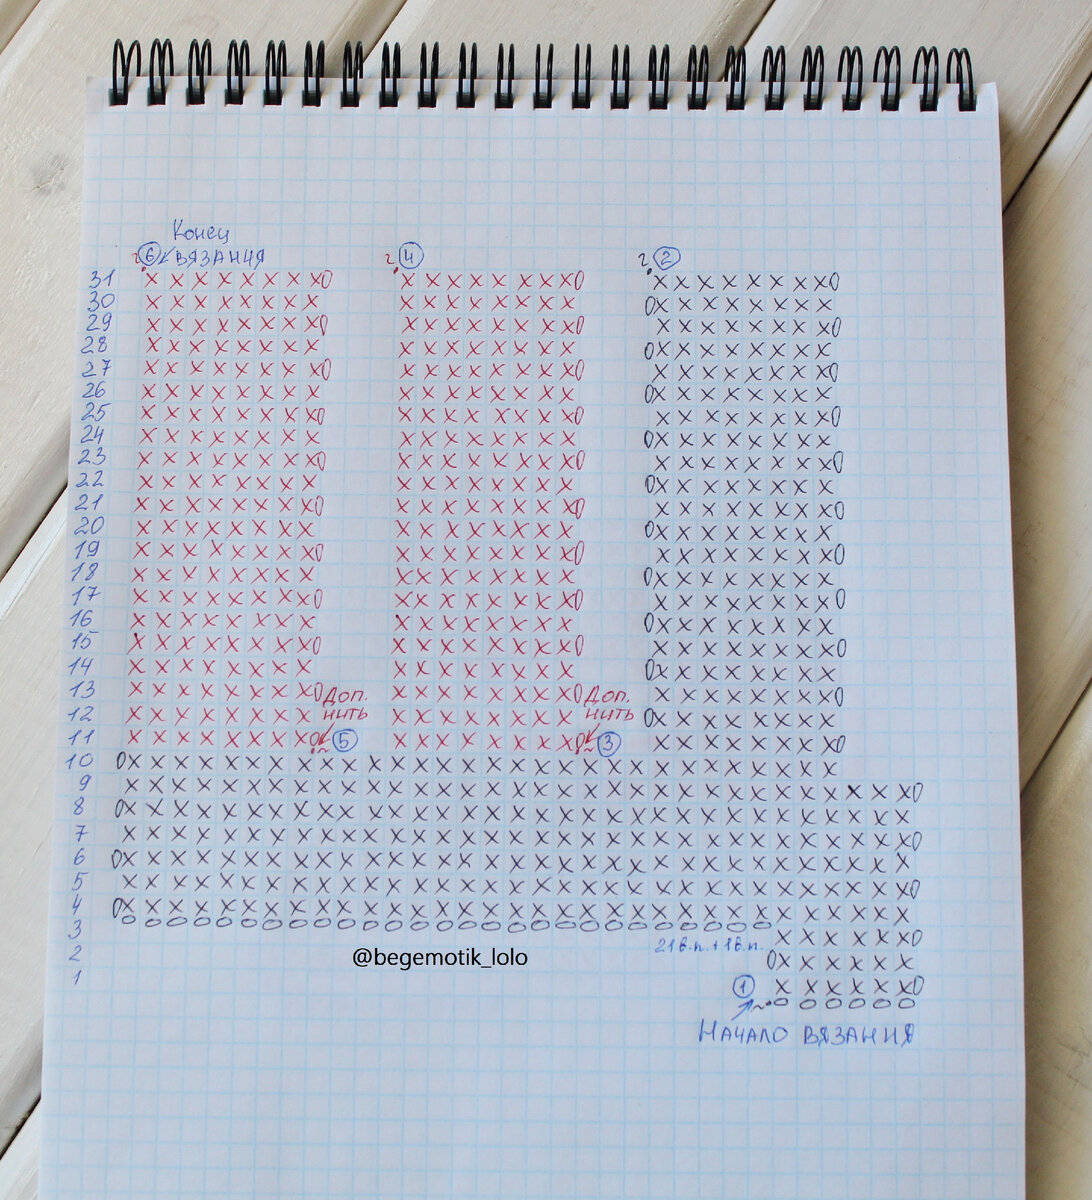 Конец
6 ВЯЗАНИЯ 4 2
31
30
29
28
27
26
25
24
23
22
21
20
19
18
17
16
15
14
13 Доп. Доп.
12 нить нить
11 5 3
10
9
8
7
6
5
4
3
21 в.п. + 1 в.п.
2 @begemotik_lolo
1 1
Начало вязания